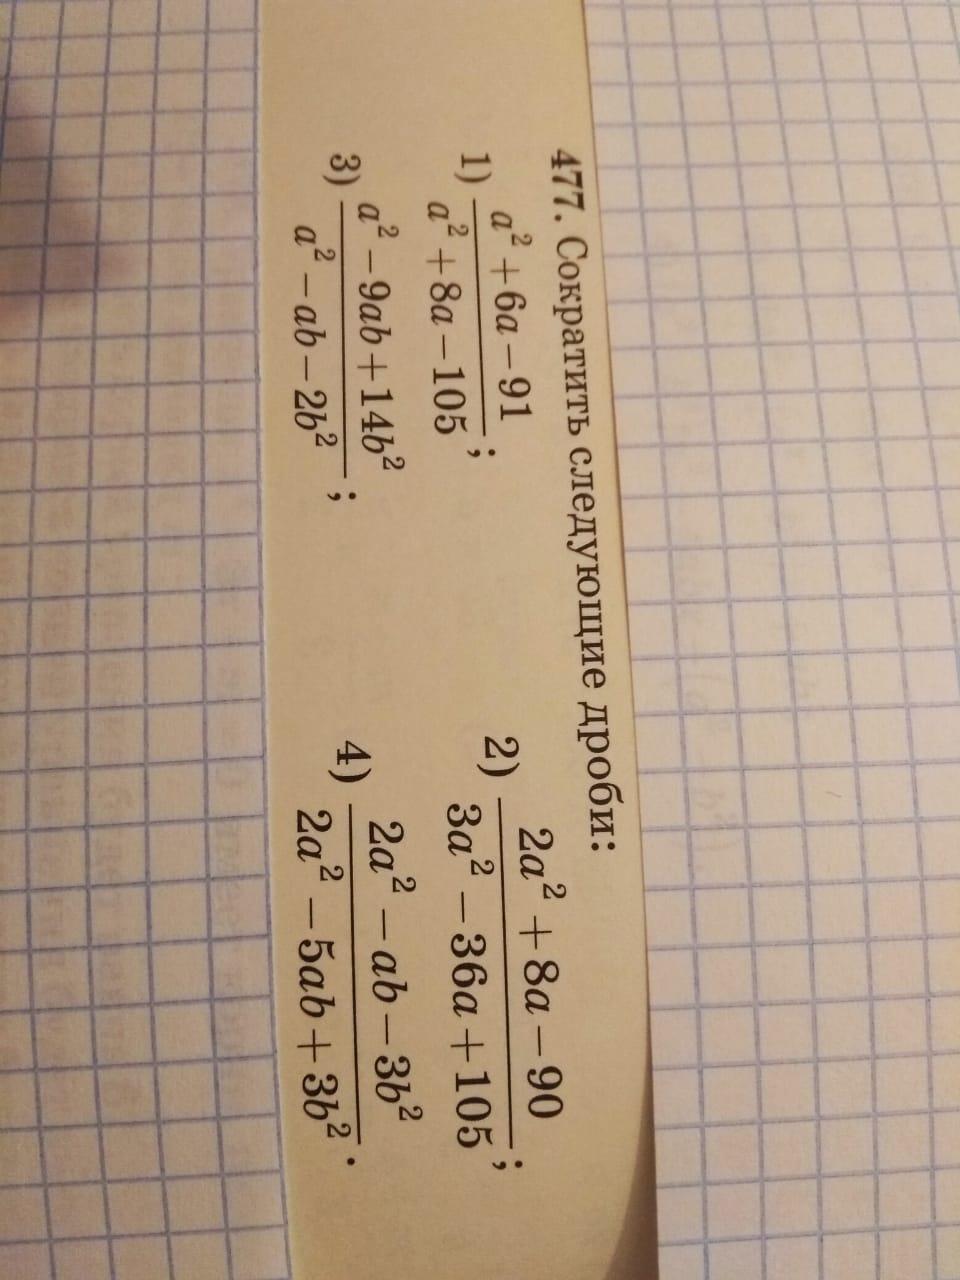 477. Сократить следующие дроби:
1) \frac{a^2+6a-91}{a^2+8a-105}; 2) \frac{2a^2+8a-90}{3a^2-36a+105};
3) \frac{a^2-9ab+14b^2}{a^2-ab-2b^2}; 4) \frac{2a^2-ab-3b^2}{2a^2-5ab+3b^2}.